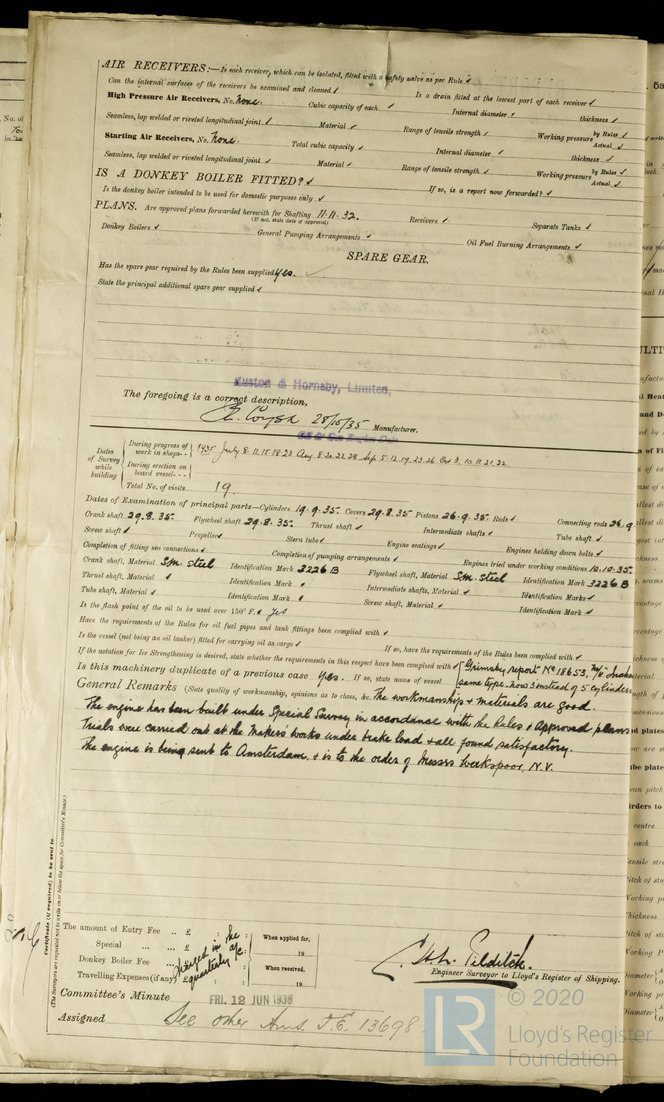 AIR RECEIVERS:—Is each receiver, which can be isolated, fitted with a safety valve as per Rule ✓
Can the internal surfaces of the receivers be examined and cleaned ✓ Is a drain fitted at the lowest part of each receiver ✓
High Pressure Air Receivers, No. None. Cubic capacity of each ✓ Internal diameter ✓ thickness ✓
Seamless, lap welded or riveted longitudinal joint ✓ Material ✓ Range of tensile strength ✓ Working pressure by Rules ✓ Actual ✓
Starting Air Receivers, No. None. Total cubic capacity ✓ Internal diameter ✓ thickness ✓
Seamless, lap welded or riveted longitudinal joint ✓ Material ✓ Range of tensile strength ✓ Working pressure by Rules ✓ Actual ✓
IS A DONKEY BOILER FITTED? ✓ If so, is a report now forwarded? ✓
Is the donkey boiler intended to be used for domestic purposes only ✓
PLANS. Are approved plans forwarded herewith for Shafting 11-11-32. Receivers ✓ Separate Tanks ✓
(If not, state date of approval)
Donkey Boilers ✓ General Pumping Arrangements ✓ Oil Fuel Burning Arrangements ✓
SPARE GEAR.
Has the spare gear required by the Rules been supplied Yes.
State the principal additional spare gear supplied ✓
Ruston & Hornsby, Limited,
The foregoing is a correct description,
28/10/35 Manufacturer.
Dates of Survey while building
During progress of work in shops - - 1935 July 8. 11. 15. 18. 23 Aug 8. 20. 22. 28 Sep. 5. 12. 19. 23. 26 Oct 3. 10. 11. 21. 22.
During erection on board vessel - - -
Total No. of visits 19.
Dates of Examination of principal parts—Cylinders 19.9.35. Covers 29.8.35 Pistons 26.9.35. Rods ✓ Connecting rods 26.9
Crank shaft 29.8.35. Flywheel shaft 29.8.35. Thrust shaft ✓ Intermediate shafts ✓ Tube shaft ✓
Screw shaft ✓ Propeller ✓ Stern tube ✓ Engine seatings ✓ Engines holding down bolts ✓
Completion of fitting sea connections ✓ Completion of pumping arrangements ✓ Engines tried under working conditions 10.10.35.
Crank shaft, Material S.M. Steel Identification Mark 3226 B Flywheel shaft, Material S.M. Steel Identification Mark 3226 B
Thrust shaft, Material ✓ Identification Mark ✓ Intermediate shafts, Material ✓ Identification Marks ✓
Tube shaft, Material ✓ Identification Mark ✓ Screw shaft, Material ✓ Identification Mark ✓
Is the flash point of the oil to be used over 150° F. Yes
Have the requirements of the Rules for oil fuel pipes and tank fittings been complied with ✓
Is the vessel (not being an oil tanker) fitted for carrying oil as cargo ✓ If so, have the requirements of the Rules been complied with ✓
If the notation for Ice Strengthening is desired, state whether the requirements in this respect have been complied with ✓
Is this machinery duplicate of a previous case Yes. If so, state name of vessel Grimsby report No 18653,
same type - now 3 instead of 5 cylinders
General Remarks (State quality of workmanship, opinions as to class, &c. The workmanship & materials are good.
The engine has been built under Special Survey in accordance with the Rules & Approved plans
Trials were carried out at the Makers works under brake load & all found satisfactory.
The engine is being sent to Amsterdam, & is to the order of Messrs Werkspoor, N.V.
Certificate (if required) to be sent to
(The Surveyors are requested not to write on or below the space for Committee's Minute.)
The amount of Entry Fee .. £ : : When applied for,
Special ... ... £ : 19
Donkey Boiler Fee ... £ : : When received,
Travelling Expenses (if any) £ : : 19
Charged in the quarterly a/c
Engineer Surveyor to Lloyd's Register of Shipping.
Committee's Minute FRI. 12 JUN 1936
Assigned See other Ams. F.E. 13698.
© 2020
LR
Lloyd's Register
Foundation